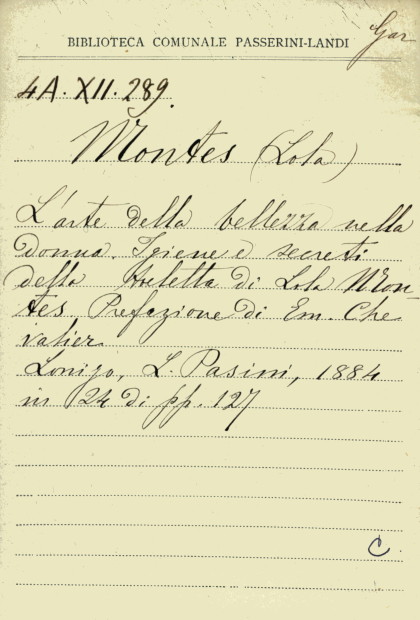 Gar
BIBLIOTECA COMUNALE PASSERINI-LANDI
4A. XII. 289.
Montes (Lola)
L'arte della bellezza nella
donna. Igiene e secreti
della toeletta di Lola Mon-
tes. Prefazione di Em. Che
valier
Lonigo, L. Pasini, 1884
in 24 di pp. 127
C.